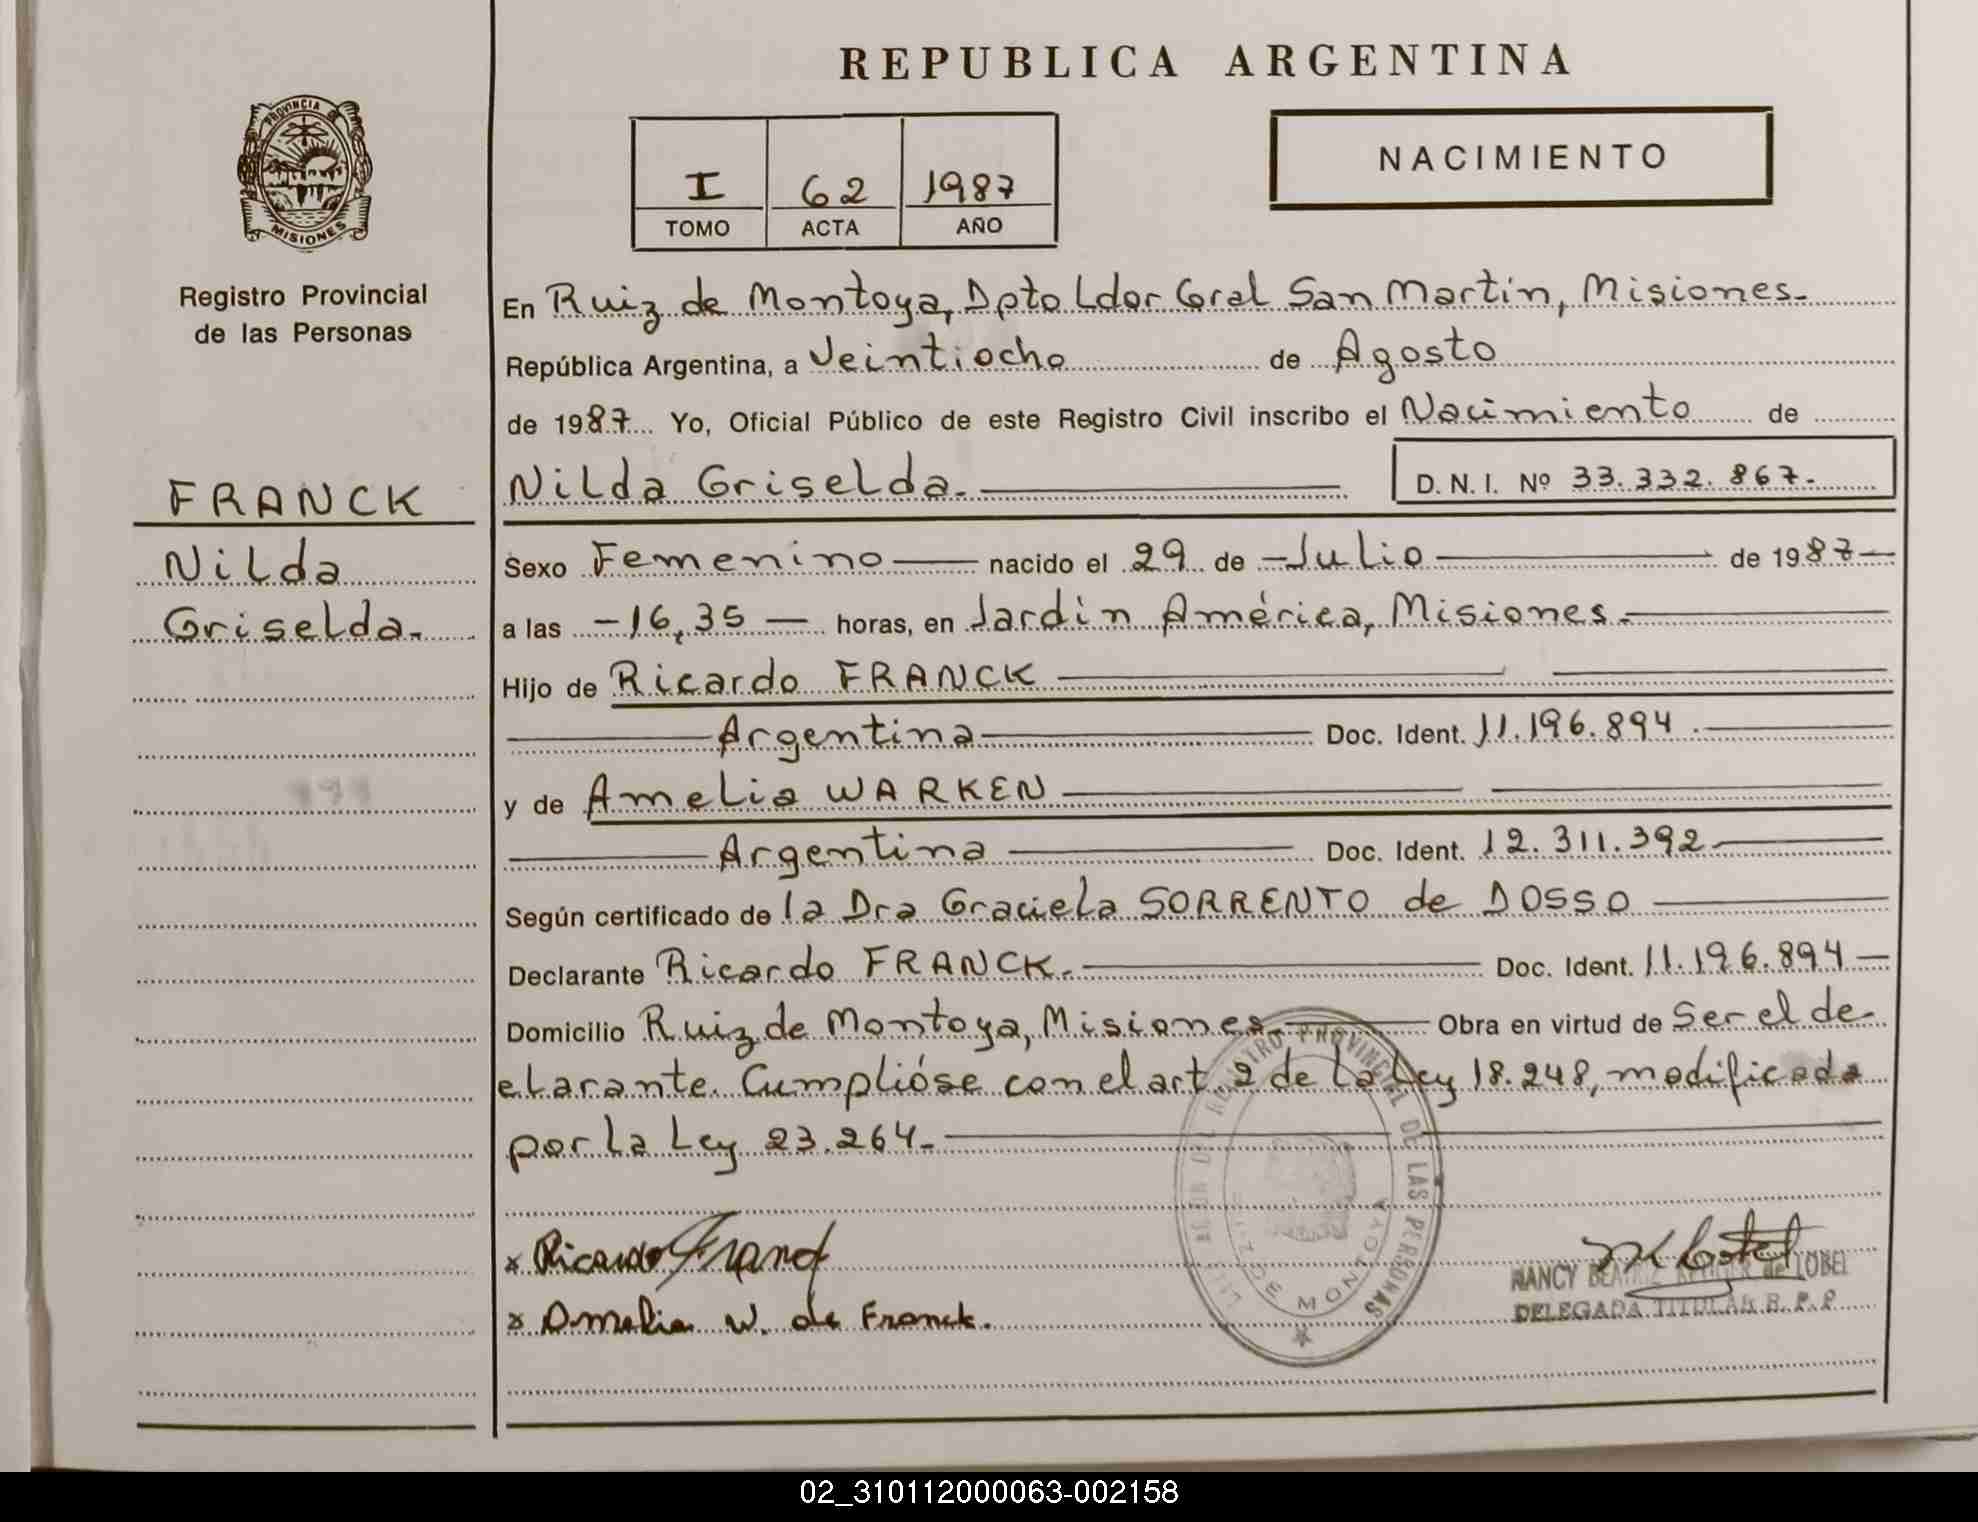 REPUBLICA ARGENTINA
PROVINCIA
MISIONES
Registro Provincial
de las Personas
I 62 1987
TOMO ACTA AÑO
NACIMIENTO
En Ruiz de Montoya, Dpto Ldor Gral San Martín, Misiones.
República Argentina, a Veintiocho de Agosto
de 1987 Yo, Oficial Público de este Registro Civil inscribo el Nacimiento de
FRANCK
Nilda
Griselda.
Nilda Griselda.
D.N.I. Nº 33.332.867.
Sexo Femenino nacido el 29 de Julio de 1987
a las 16,35 horas, en Jardín América, Misiones.
Hijo de Ricardo FRANCK
Argentina Doc. Ident. 11.196.894.
y de Amelia WARKEN
Argentina Doc. Ident. 12.311.392
Según certificado de la Dra Graciela SORRENTO de DOSSO
Declarante Ricardo FRANCK. Doc. Ident. 11.196.894
Domicilio Ruiz de Montoya, Misiones. Obra en virtud de Ser el de-
clarante. Cumplióse con el art. 2 de la Ley 18.248, modificada
por la Ley 23.264.
x Ricardo Franck
x Amelia W. de Franck.
REGISTRO PROVINCIAL DE LAS PERSONAS
RUIZ DE MONTOYA
NANCY BEATRIZ de LOBEL
DELEGADA TITULAR R.P.P.
02_310112000063-002158